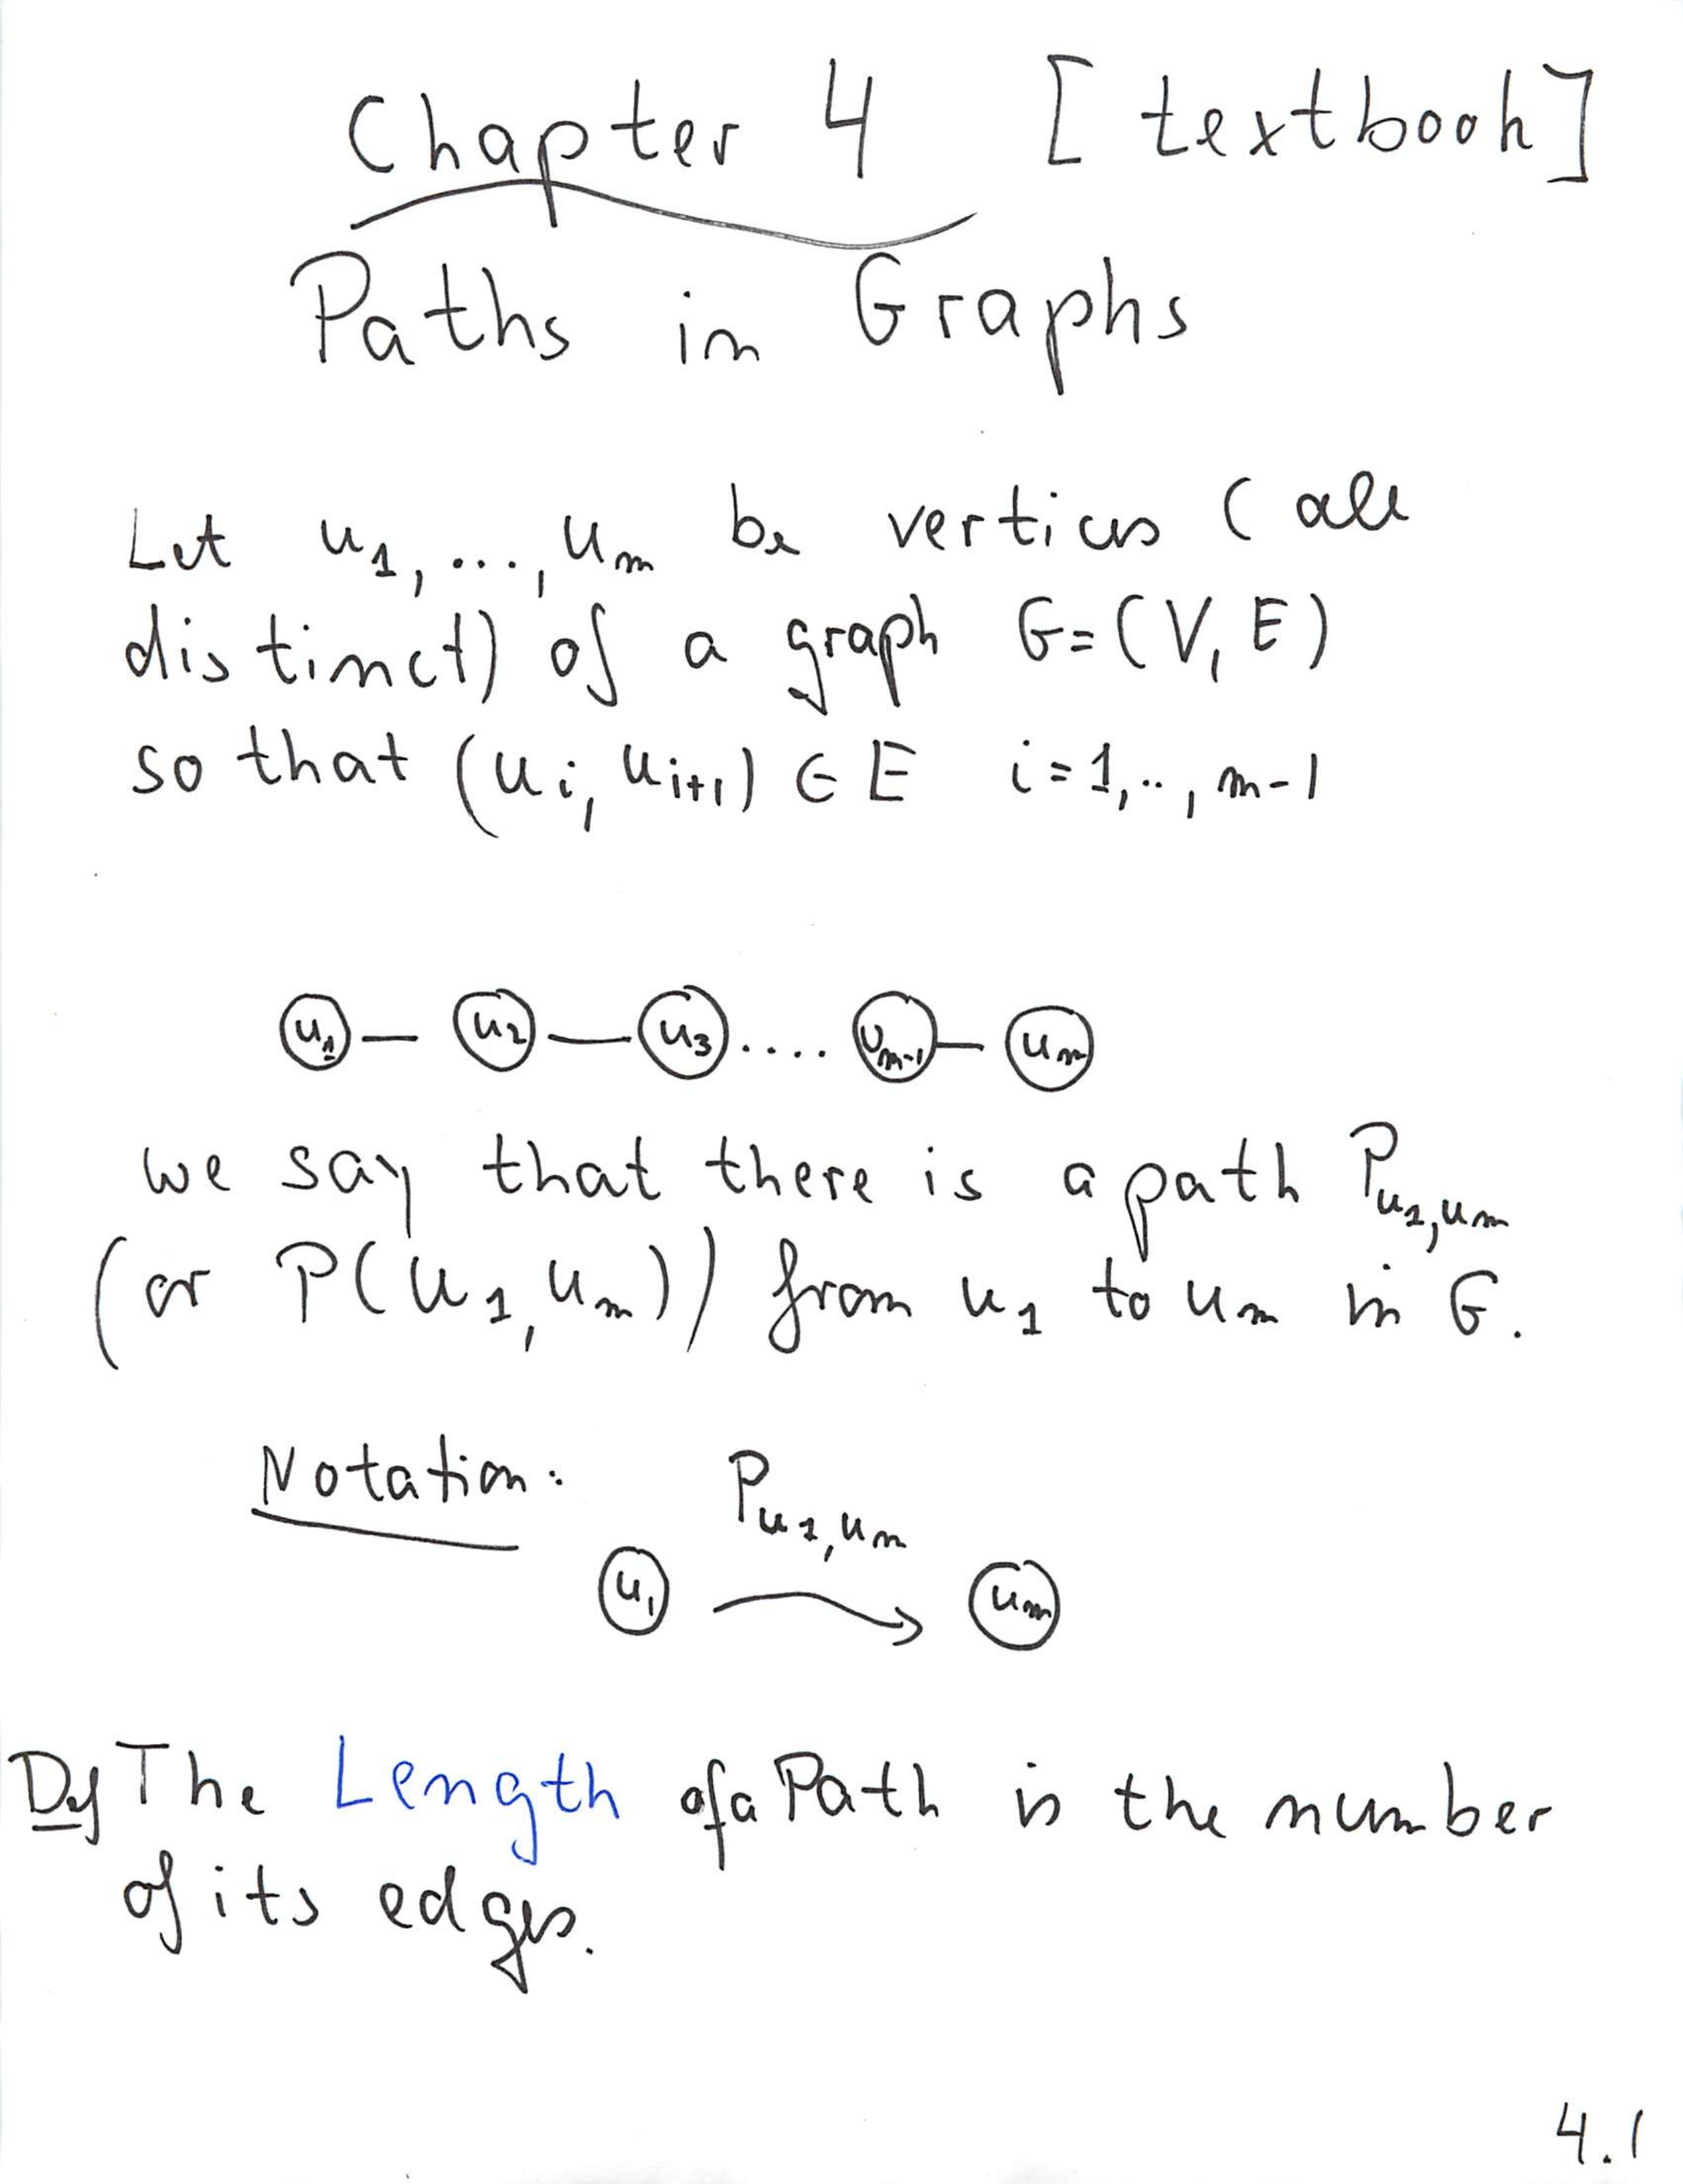 Chapter 4 [textbook]
Paths in Graphs
Let u₁, ..., uₘ be vertices (all
distinct) of a graph G=(V, E)
so that (uᵢ, uᵢ₊₁) ∈ E i=1,.., m-1
u₁ — u₂ — u₃ .... uₘ₋₁ — uₘ
we say that there is a path P_{u₁,uₘ}
(or P(u₁, uₘ)) from u₁ to uₘ in G.
Notation: P_{u₁,uₘ}
u₁ → uₘ
Def The Length of a Path is the number
of its edges.
4.1